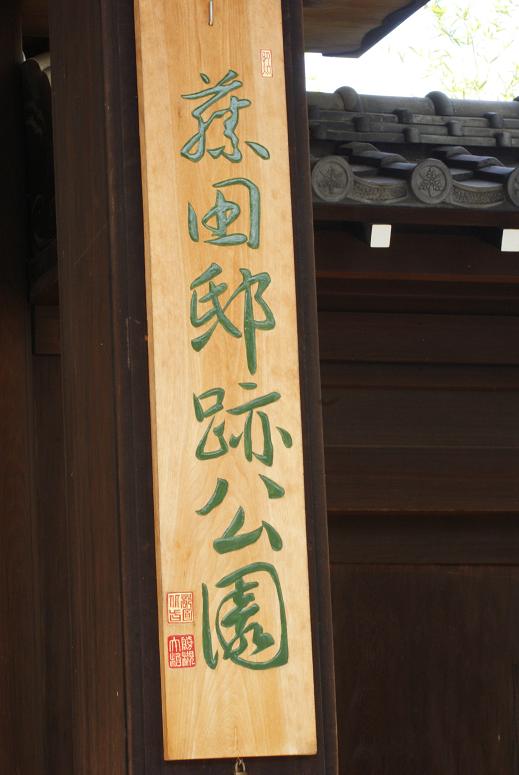 藤田邸跡公園